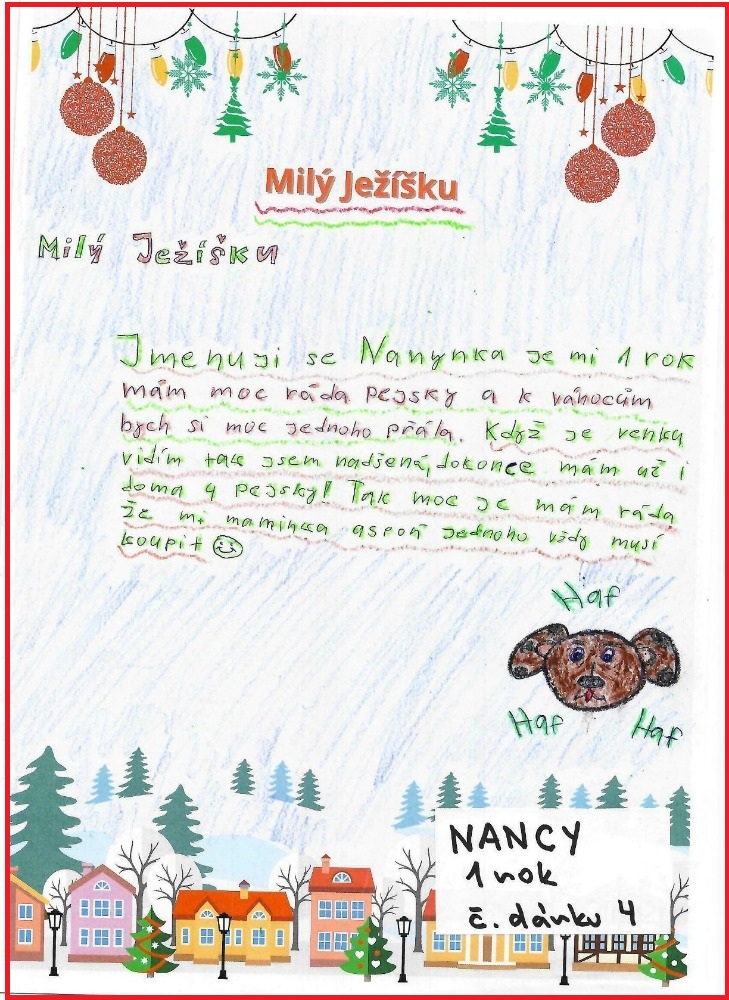 Milý Ježíšku
Milý Ježíšku
Jmenuji se Nanynka je mi 1 rok
mám moc ráda pejsky a k vánocům
bych si moc jednoho přála. Když je venku
vidím tak jsem nadšená, dokonce mám už i
doma 4 pejsky! Tak moc je mám ráda
že mi maminka aspoň jednoho vždy musí
koupit
Haf
Haf Haf
NANCY
1 rok
č. dárku 4